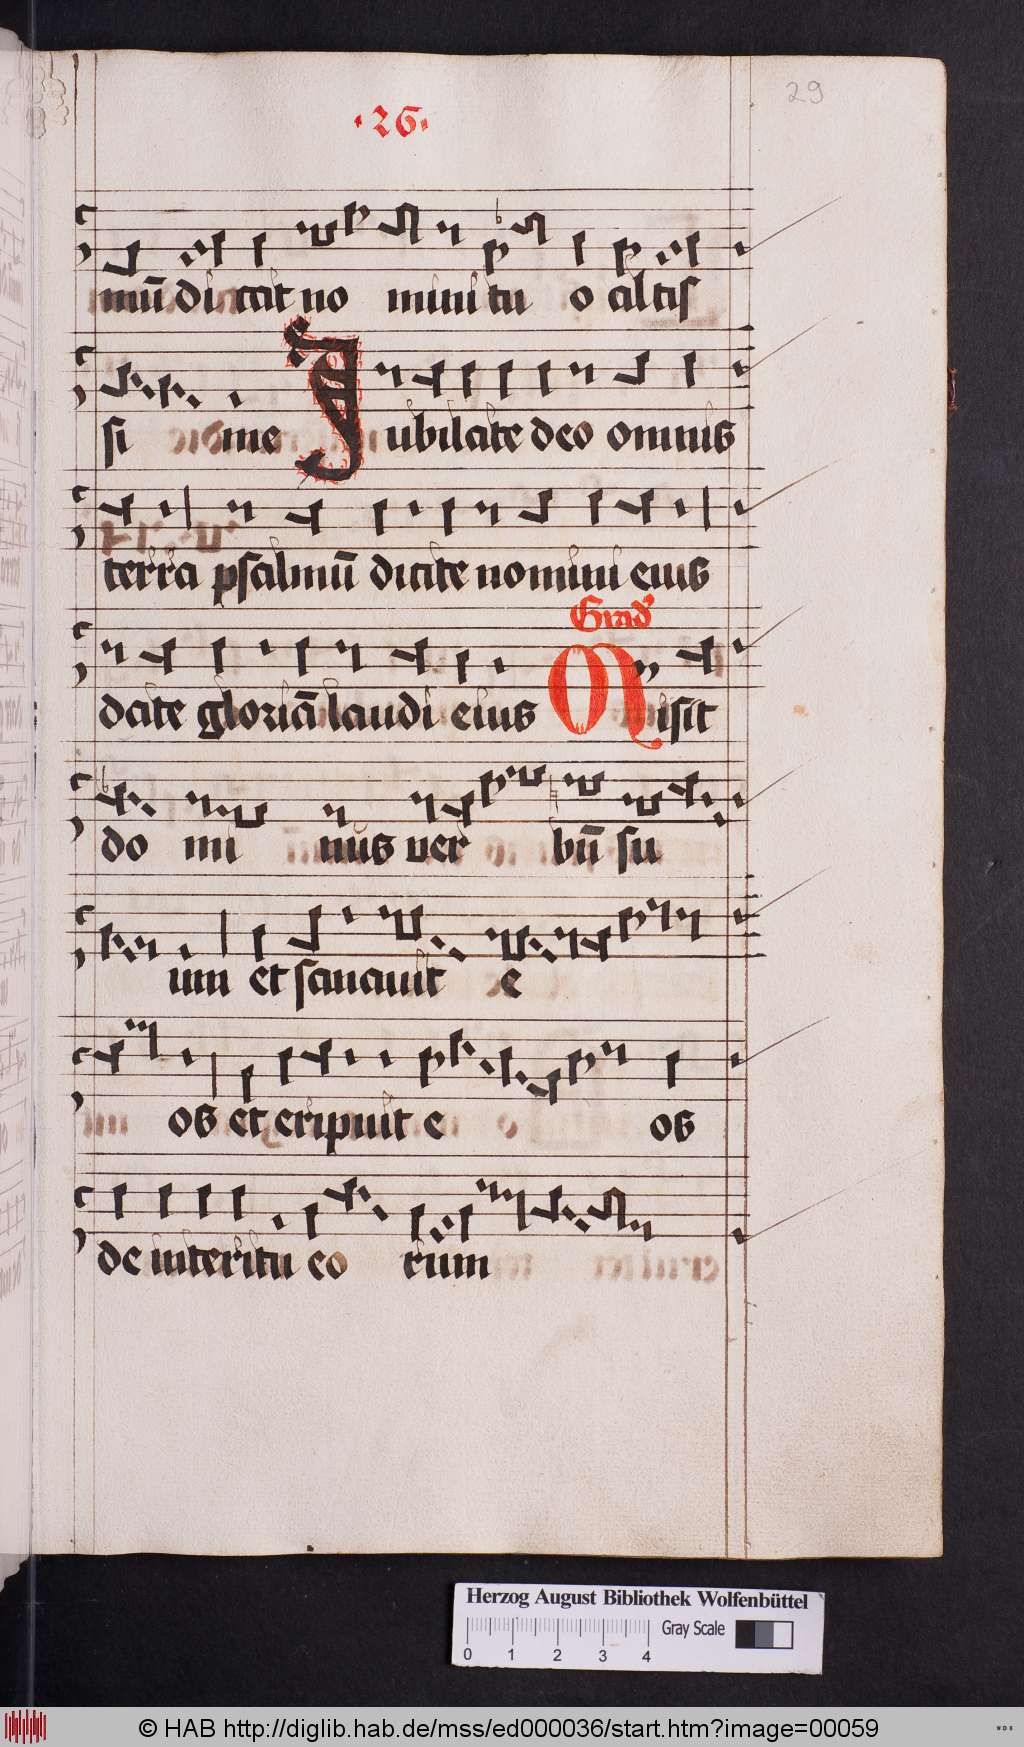 29
·26·
mū di cat no mini tu o altis
si me Jubilate deo omnis
terra psalmū dicite nomini eius
Grad'
date gloriā laudi eius Misit
do mi nus ver bū su
um et sanavit e
os et eripuit e os
de interitu eo rum
Herzog August Bibliothek Wolfenbüttel
Gray Scale
0 1 2 3 4
© HAB http://diglib.hab.de/mss/ed000036/start.htm?image=00059